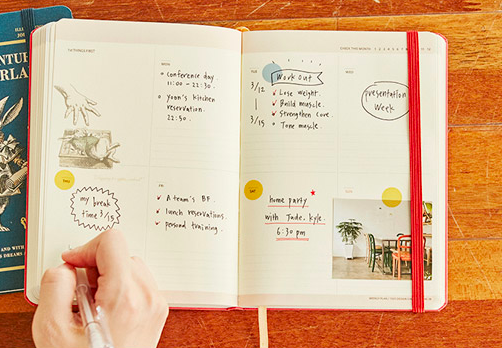 1ST THINGS FIRST
MON
conference day
11:00 - 22:30
yoon's kitchen
reservation.
22:30.
my break
time 3/15
FRI
A team's BF.
lunch reservations.
personal training.
CHECK THIS MONTH 1 2 3 4 5 6 7 8 9 10 11 12
TUE
Work Out
3/12
|
3/15
Lose weight.
Build muscle.
Strengthen core.
Tone muscle.
WED
presentation
Week
SAT
home party
with Jude, kyle.
6:30 pm
SUN